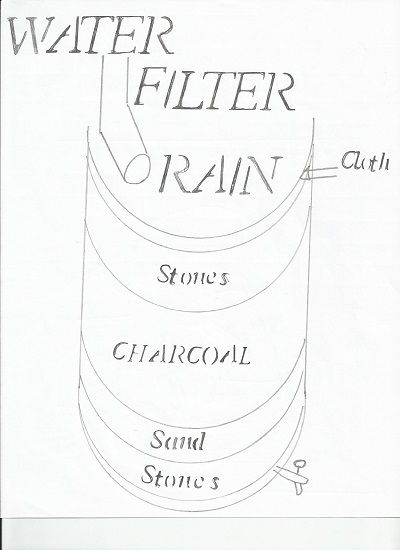 WATER
FILTER
RAIN
Cloth
Stones
CHARCOAL
Sand
Stones